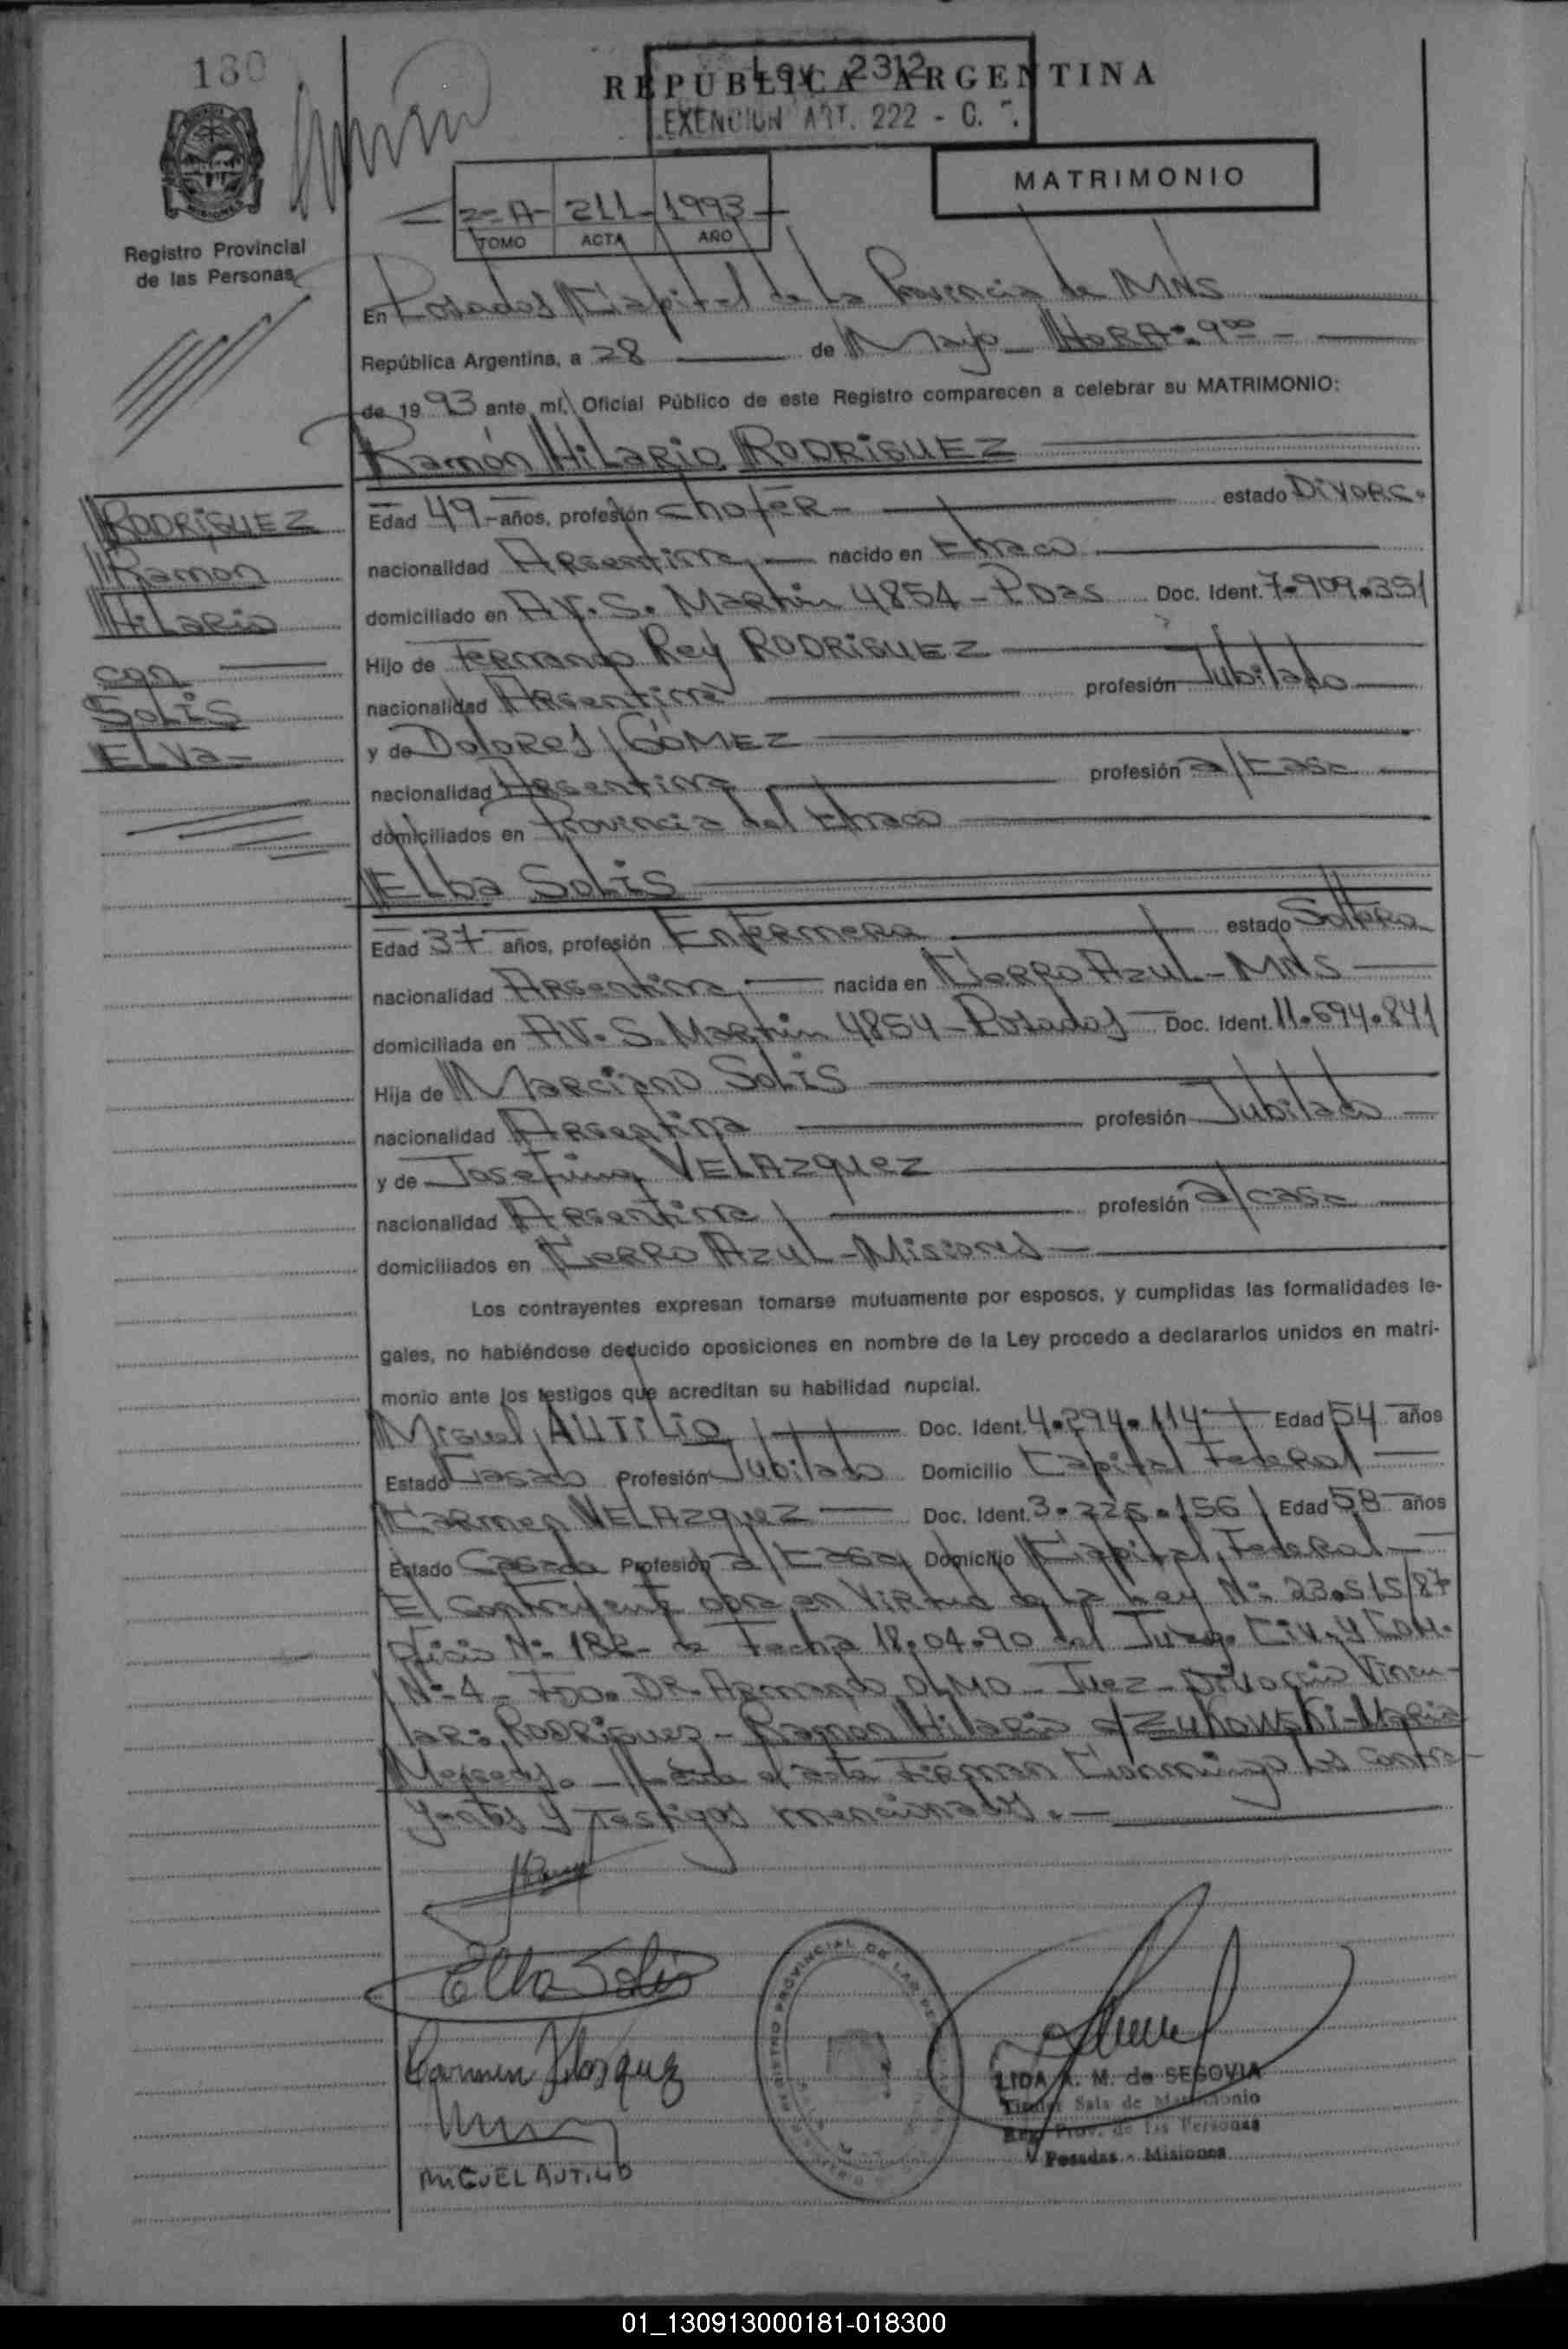 180
Ley 2312
REPUBLICA ARGENTINA
EXENCION ART. 222 - C.
MATRIMONIO
2= A- 211- 1993
TOMO ACTA AÑO
Registro Provincial
de las Personas
En Posadas Capital de la Provincia de MNS
República Argentina, a 28 de Mayo HORA: 9°°
de 1993 ante mí, Oficial Público de este Registro comparecen a celebrar su MATRIMONIO:
Ramón Hilario RODRIGUEZ
RODRIGUEZ
Ramon
Hilario
con
SOLIS
ELVa-
Edad 49- años, profesión chofer- estado Divorc.
nacionalidad Argentina nacido en Chaco
domiciliado en AV. S. Martin 4854 - Pdas Doc. Ident. 7.909.351
Hijo de Fernando Rey RODRIGUEZ
nacionalidad Argentina profesión Jubilado
y de Dolores GOMEZ
nacionalidad Argentina profesión a/casa
domiciliados en Provincia del Chaco
Elba SOLIS
Edad 37 años, profesión Enfermera estado Soltera
nacionalidad Argentina nacida en Cerro Azul - MNS
domiciliada en AV. S. Martin 4854 - Posadas Doc. Ident. 11.694.841
Hija de Marciano SOLIS
nacionalidad Argentina profesión Jubilado
y de Josefina VELAZquez
nacionalidad Argentina profesión a/casa
domiciliados en Cerro Azul - Misiones
Los contrayentes expresan tomarse mutuamente por esposos, y cumplidas las formalidades le-
gales, no habiéndose deducido oposiciones en nombre de la Ley procedo a declararlos unidos en matri-
monio ante los testigos que acreditan su habilidad nupcial.
Miguel AUTILIO Doc. Ident. 4.294.114 Edad 54 años
Estado Casado Profesión Jubilado Domicilio Capital Federal
Carmen VELAZquez Doc. Ident. 3.225.156 Edad 58 años
Estado Casada Profesión a/casa Domicilio Capital Federal
El contrayente obra en virtud de la Ley N= 23.515/87
Oficio N= 182- de Fecha 18.04.90 del Juzg. Civ. y Com.
N=4- Fdo. DR. Armando OLMO - Juez - Divorcio Vincu-
lar: Rodriguez - Ramon Hilario c/ ZUKOWSKI - Maria
Mercedes. - el acta Firman Conmigo los contra-
yentes y Testigos mencionados.
Elba Solis
Carmen Velazquez
MIGUEL AUTILIO
REGISTRO PROVINCIAL DE LAS PERSONAS
LIDA A. M. de SEGOVIA
Titular Sala de Matrimonio
Reg. Prov. de las Personas
Posadas - Misiones
01_130913000181-018300